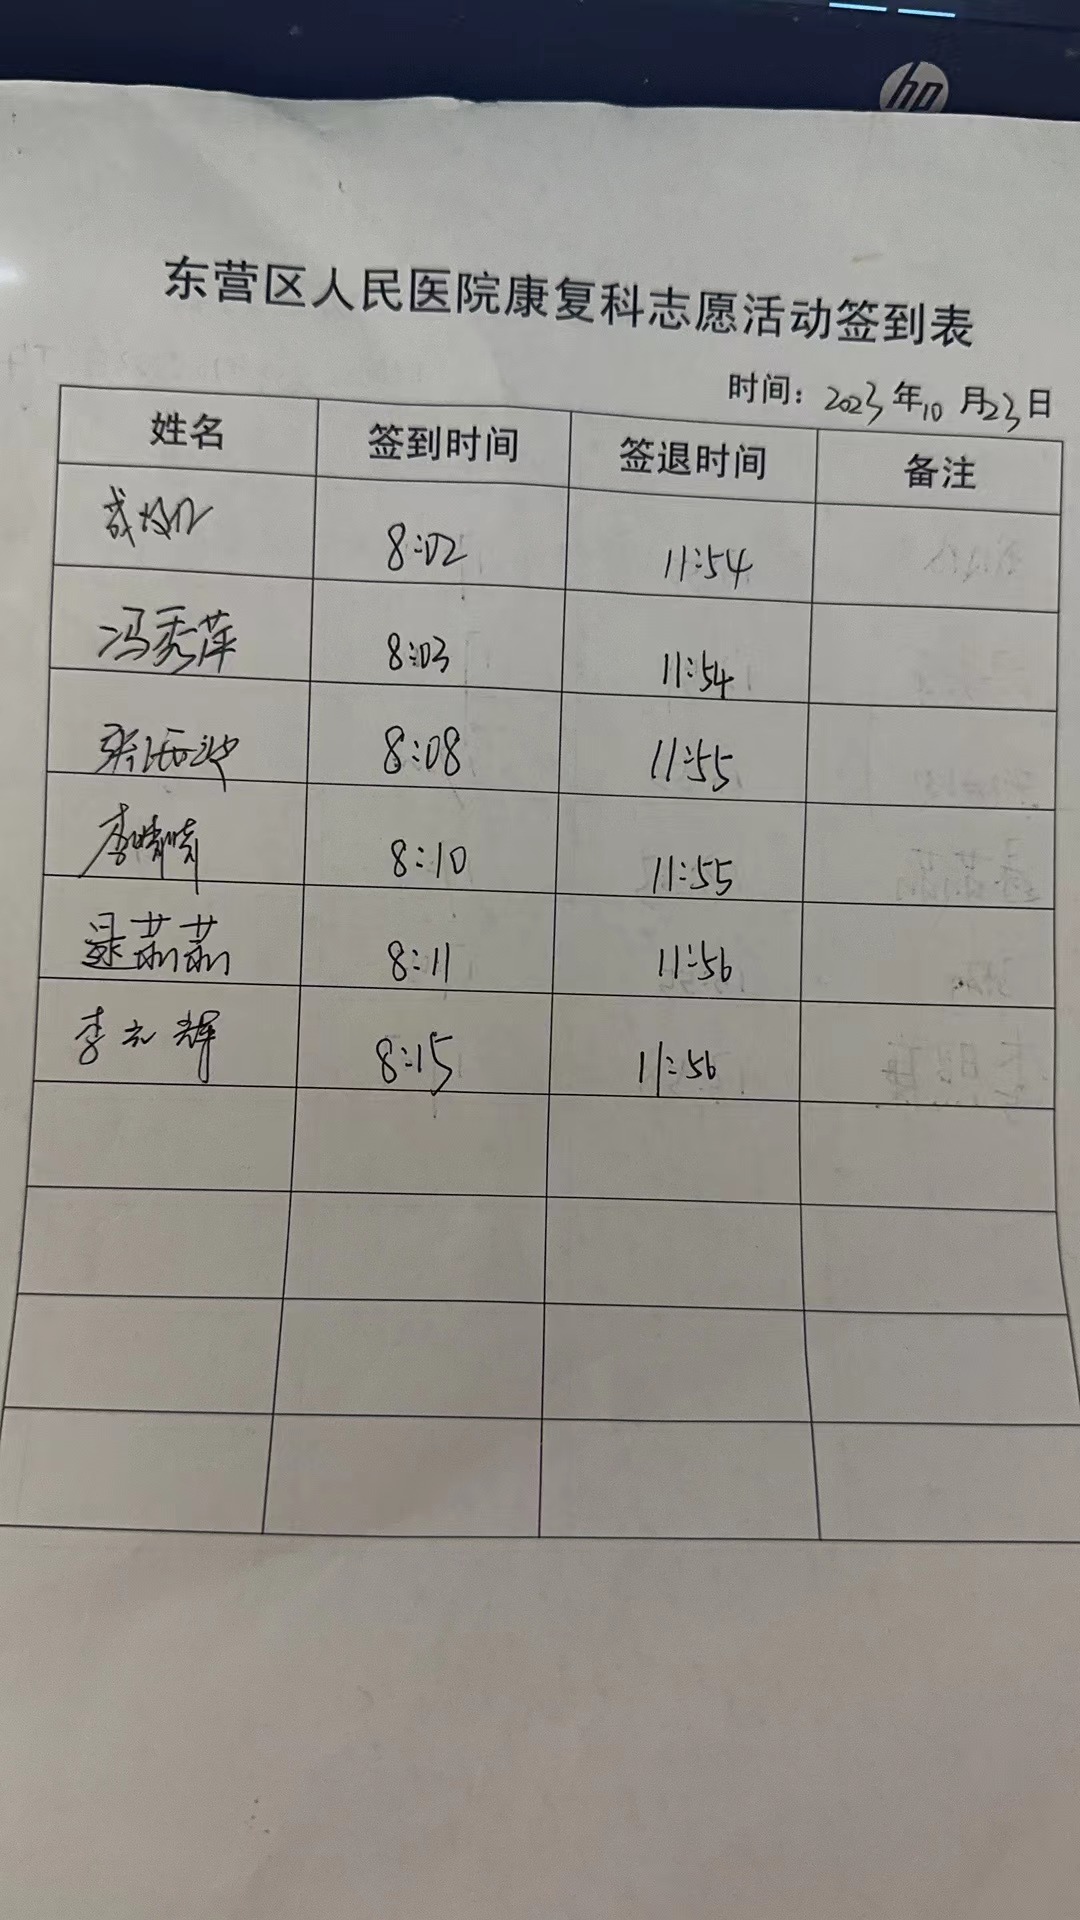 hp
东营区人民医院康复科志愿活动签到表
时间：2023年10月23日
姓名 签到时间 签退时间 备注
8:02 11:54
冯秀萍 8:03 11:54
张 8:08 11:55
李晴晴 8:10 11:55
逯荔荔 8:11 11:56
李元辉 8:15 11:56